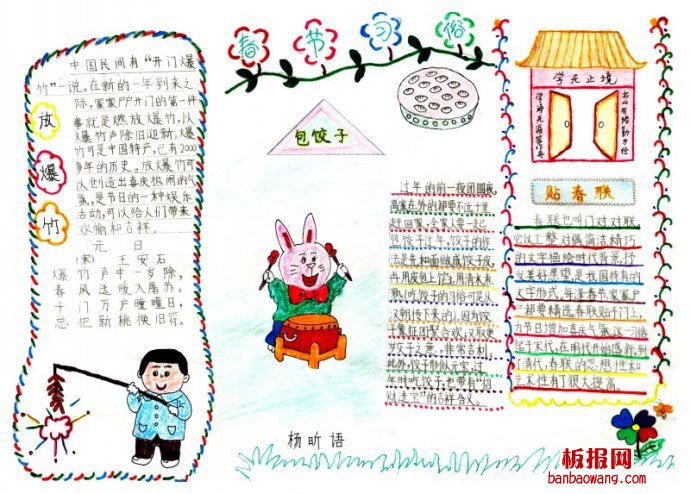 春节习俗
放爆竹
中国民间有“开门爆
竹”一说。在新的一年到来之
际,家家户户开门的第一件
事就是燃放爆竹,以
爆竹声除旧迎新。爆
竹可是中国特产,已有2000
多年的历史。放爆竹可
以创造出喜庆热闹的气
氛,是节日的一种娱乐
活动,可以给人们带来
欢愉和吉祥。
元日
(宋) 王安石
爆竹声中一岁除,
春风送暖入屠苏。
千门万户曈曈日,
总把新桃换旧符。
包饺子
过年的前一夜团圆夜,
离家在外的都要不远千里
赶回家,全家人要一起
包饺子过年,饺子的作
法是先和面做成饺子皮,
再用皮包上馅,用清水煮
熟(吃饺子的习俗可是从
汉朝传下来的),因为饺
子象征团聚合欢,又取更
岁交子之意,非常吉利,
此外,饺子形似元宝,过
年时吃饺子,也带有“招
财进宝”的吉祥含义。
学无止境
书山有路勤为径
学海无涯苦作舟
贴春联
春联也叫门对对联,
它以工整对偶简洁精巧
的文字描绘时代背景,抒
发美好愿望,是我国特有的
文字形式,每逢春节家家户
户都要精选春联贴于门上,
为节日增加喜庆气氛,这一习俗
起于宋代,在明代开始盛行,到
了清代,春联的思想性和
艺术性有了很大提高。
杨昕语
板报网
banbaowang.com